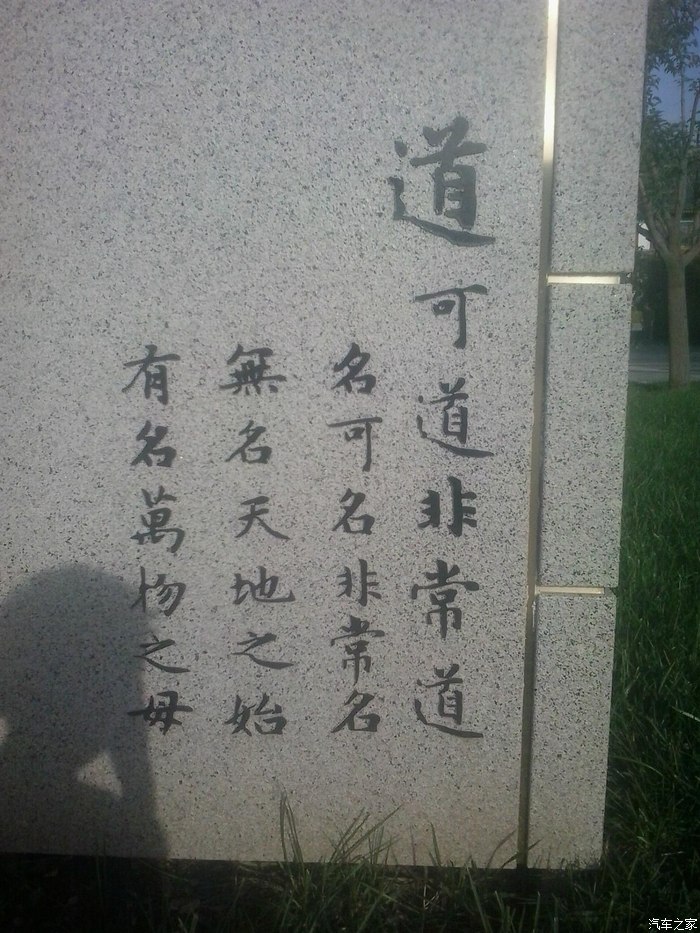 道可道非常道
名可名非常名
無名天地之始
有名萬物之母
汽车之家